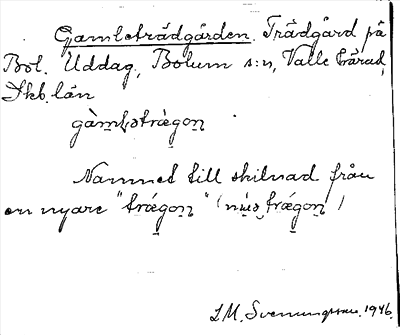 Gamleträdgården. Trädgård på
Bol. Uddag., Bolum s:n, Valle härad,
Skb. län
gàmlətrǽgon
Namnet till skilnad från
en nyare "trǽgon" (nẃə trǽgon)
L.M. Svenungsson. 1946.